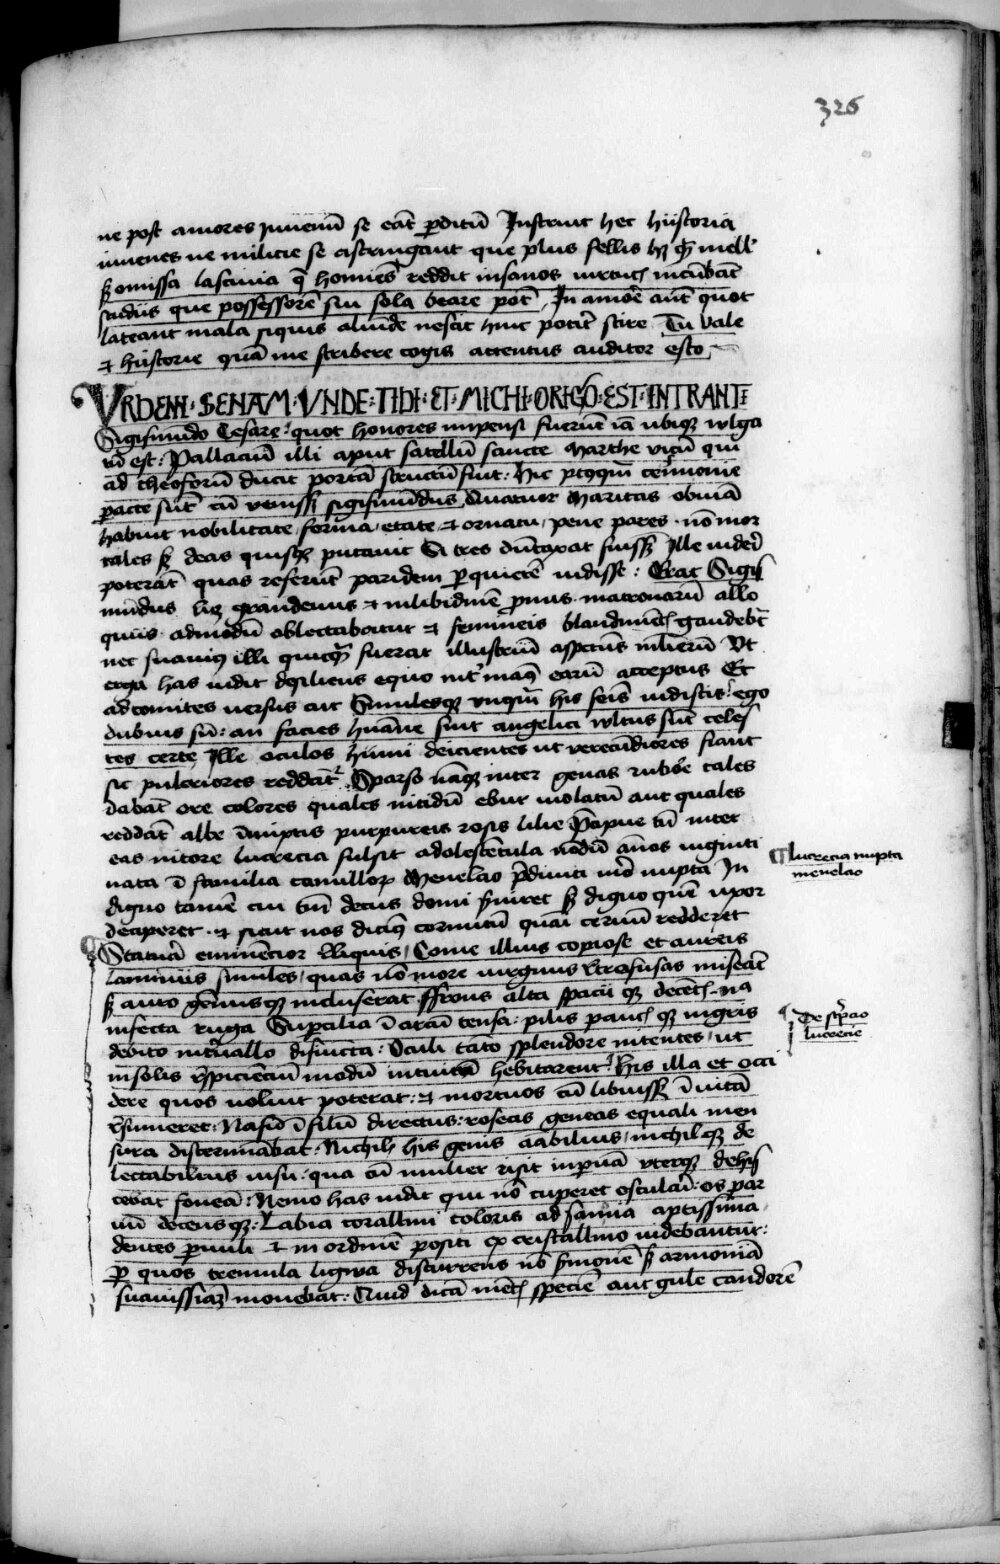 326
ne post amores Iuvenū se eāt p̄ditū Instruit hec hiistoria
iuvenes ne milicie se astringant que plus fellis hȝ q̄ȝ mell'
sȝ omissa lascivia q̄ homīes reddit insanos virtutꝭ incūbāt
studiis que possessorē sui sola beare pōt, In amōe aūt quot
lateant mala siquis aliūde nescit hinc poterit scire Tu vale
⁊ hiistorie quā me scribere cogis attentus auditor esto
VRBEM · SENAM · VNDE : TIBI : ET · MICHI · ORIGO : EST · INTRANTI
Sigismūdo Cesare : quot honores impensi fuerūt iā ubiqȝ wlga
tū est : Pallaciū illi aput sacellū sancte Marthe vicū qui
ad theoforū ducit portā structū fuit : Hic pꝰtqȝ cerimonie
pacte sūt cū venissȝ sigismūdus, Quatuor Maritas obviā
habuit nobilitate, forma, etate ⁊ ornatu, pene pares · nō mor
tales sȝ deas quisqȝ putavit Si tres dūtaxat fuissȝ Ille videri
poterāt quas referūt paridem p quietē vidisse : Erat Sigis
mūdus licȝ grandevus ⁊ in libidinē pnus · matronarū allo
quiis admodū oblectabatur ⁊ femineis blandimētꝭ gaudebat
nec suavius illi quicq̄ fuerat illustriū aspectus mlierū Vt
ergo has vidit desiliens equo int' manꝰ earū acceptus Et
ad comites versus ait Similesqȝ vnquā his feīs vidistis : ego
dubius sū : an facies hūane sint angelici vltus sūt celes
tes certe, Ille oculos humi deicientes ut verecūdiores fiant
sic pulcriores reddūt, Sparso nāqȝ inter genas rubōe tales
dabāt ore colores quales nitidū ebur violatū aut quales
reddāt albe īmixtis purpureis rosis lilie Precipue tn̄ inter
eas nitore lucrecia fulsit adolescētula nōdū ānos viginti
nata ī familia camillorꝝ Menelao pdiviti viro nupta In
digno tamē cui tm̄ decus domi serviret sȝ digno quē uxor
deciperet · ⁊ sicut nos dicimꝰ cornutū quasi cervum redderet
Statura eminēcior reliquis, Come illius copiose et aureis
laminiis similes, quas nō more virginis retrofusas miserat
sȝ auro gēmisqȝ incluserat ffrons alta spacii qȝ decētꝭ · na
infecta ruga Supcilia ī arcū tensa : pilis paucꝭ qȝ nigris
debito intervallo disiuncta : Oculi tāto splendore nitentes, ut
in solis respiciencium modū intuitꝰ hebitarent : His illa et occi
dere quos voluit poterat : ⁊ mortuos cū libuissȝ ī vitā
resumeret : Nasꝰ ī filū directus : roseas geneas equali men
sura discernebat : Nichil his genis amabilius, nichilqȝ de
lectabilius visu : qua cū mulier risit in pvā vterqȝ dehis
cebat foveā : Nemo has vidit qui nō cuperet osculari : os par
vū decensqȝ : Labia corallini coloris ad samina aptissima,
dentes pvuli ⁊ in ordinē positi ex cristallino videbantur :
p quos tremula ligwa discurrens nō smonē sȝ armoniā
suavissimā movebat : Quid dicā mētꝭ speciē aut gule candorē
lucrecia nupta
menelao
De scrpcio
lucrecie